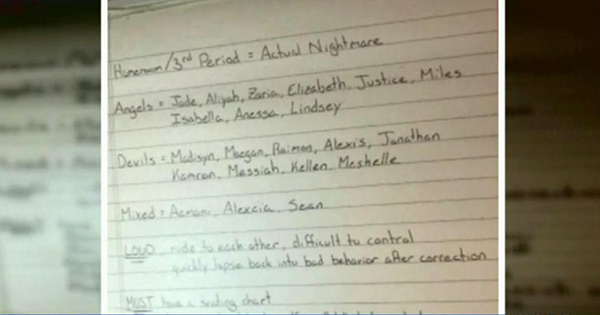 Homeroom/3rd Period = Actual Nightmare
Angels = Jade, Aliyah, Zaria, Elizabeth, Justice, Miles
Isabella, Anessa, Lindsey
Devils = Madisyn, Maegan, Raiman, Alexis, Jonathan
Kamron, Messiah, Kellen, Meshelle
Mixed = Armani, Alexcia, Sean
LOUD rude to each other, difficult to control
quickly lapse back into bad behavior after correction
MUST have a seating chart